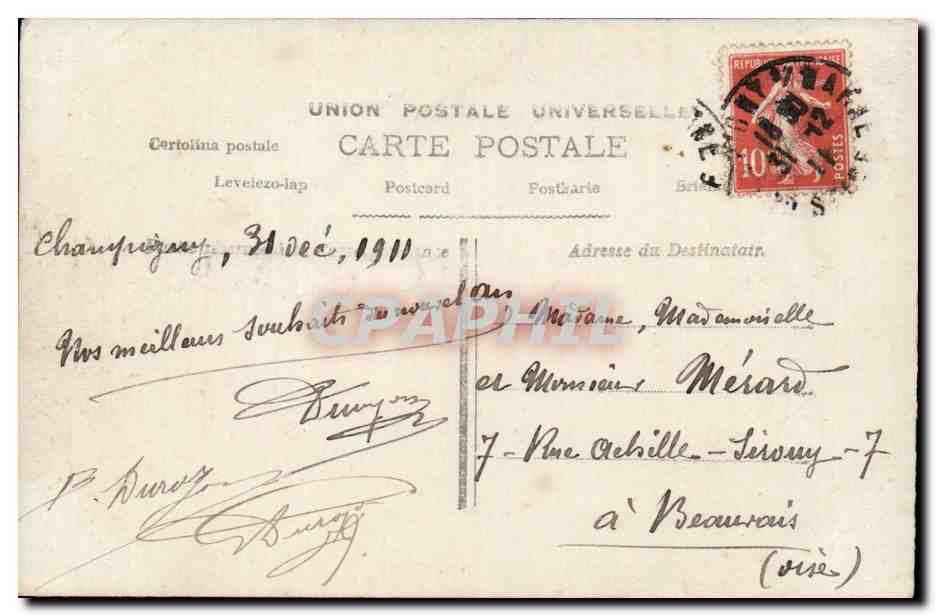 UNION POSTALE UNIVERSELLE
Cartolina postale CARTE POSTALE
Levelezo-lap Postcard Postkarte
Adresse du Destinatair.
REPUBLIQUE FRANÇAISE
10
POSTES
Champigny, 31 Déc, 1911
Nos meilleurs souhaits du nouvel an
P. Duroy
Duroy
Madame, Mademoiselle
et Monsieur Mérard
7 - Rue Achille - Sirouy - 7
à Beauvais
(oise)
CPAPHIL